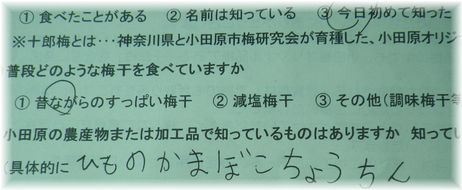 ① 食べたことがある ② 名前は知っている ③ 今日初めて知った
※十郎梅とは･･･神奈川県と小田原市梅研究会が育種した、小田原オリジ
普段どのような梅干を食べていますか
① 昔ながらのすっぱい梅干 ② 減塩梅干 ③ その他（調味梅干等
小田原の農産物または加工品で知っているものはありますか 知ってい
（具体的に ひものかまぼこちょうちん